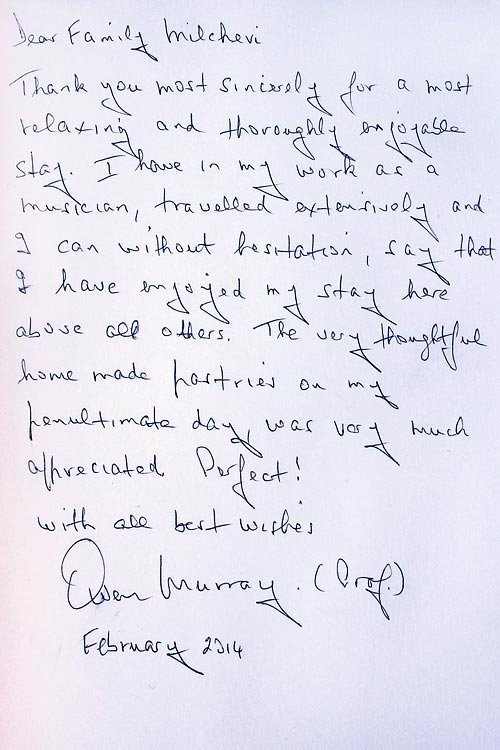 Dear Family Milchevi
Thank you most sincerely for a most
relaxing and thoroughly enjoyable
stay. I have in my work as a
musician, travelled extensively and
I can without hesitation, say that
I have enjoyed my stay here
above all others. The very thoughtful
home made pastries on my
penultimate day, was very much
appreciated Perfect!
with all best wishes
Owen Murray. (Prof.)
February 2014